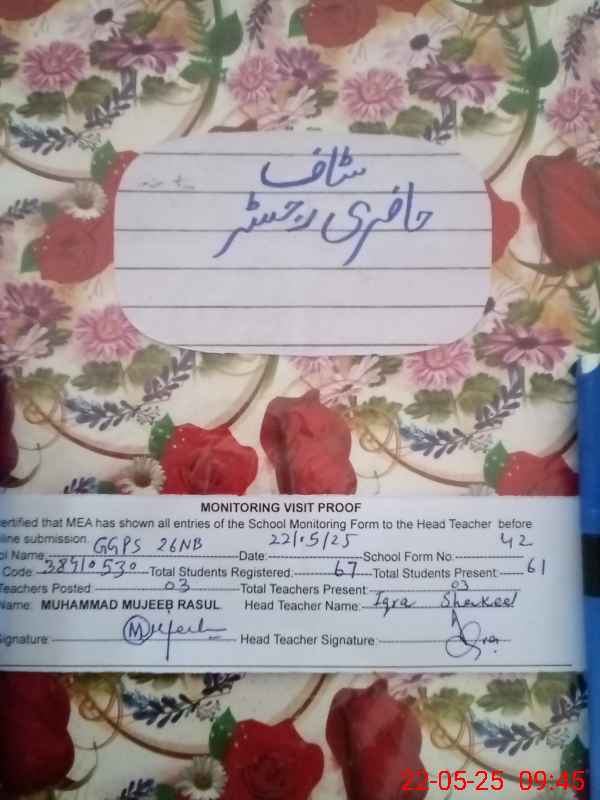 سٹاف
حاضری رجسٹر
MONITORING VISIT PROOF
ertified that MEA has shown all entries of the School Monitoring Form to the Head Teacher before
line submission.
ol Name: GGPS 26NB Date: 22/05/25 School Form No: 42
Code: 38410530 Total Students Registered: 67 Total Students Present: 61
Teachers Posted: 03 Total Teachers Present: 03
Name: MUHAMMAD MUJEEB RASUL Head Teacher Name: Iqra Shakeel
Signature: Mujeeb Head Teacher Signature:
22-05-25 09:45